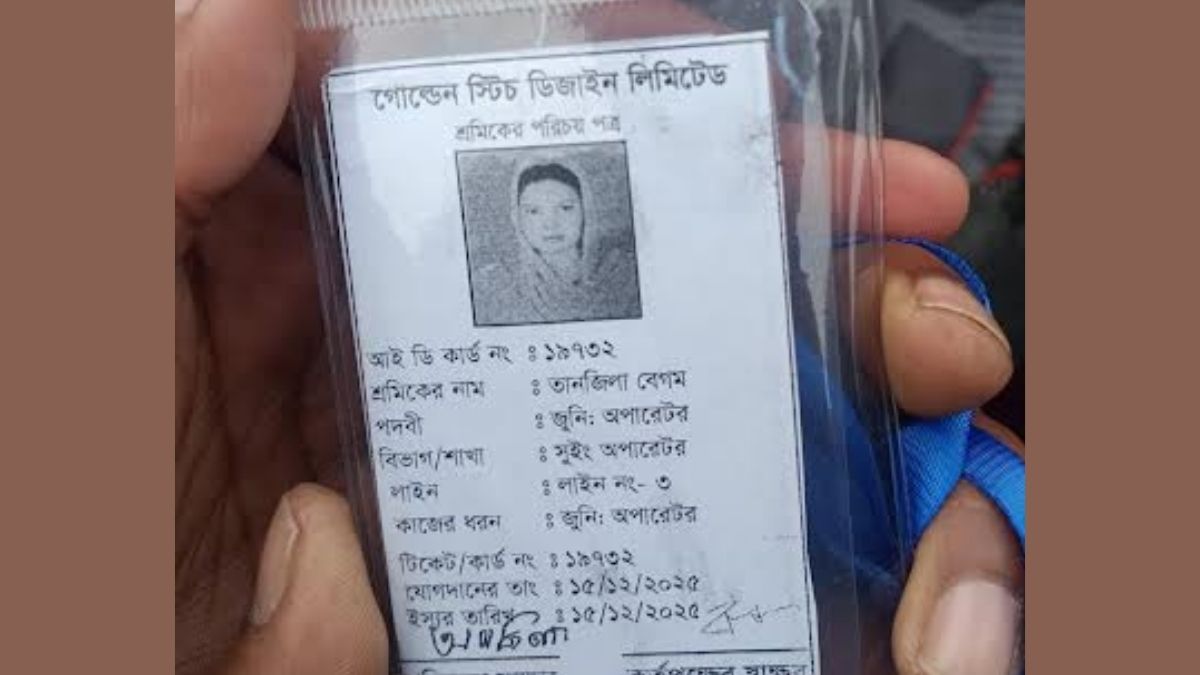 গোল্ডেন স্টিচ ডিজাইন লিমিটেড
শ্রমিকের পরিচয় পত্র
আই ডি কার্ড নং : ১৯৭৩২
শ্রমিকের নাম : তানজিলা বেগম
পদবী : জুনি: অপারেটর
বিভাগ/শাখা : সুইং অপারেটর
লাইন : লাইন নং- ৩
কাজের ধরন : জুনি: অপারেটর
টিকেট/কার্ড নং : ১৯৭৩২
যোগদানের তাং : ১৫/১২/২০২৫
ইস্যুর তারিখ : ১৫/১২/২০২৫